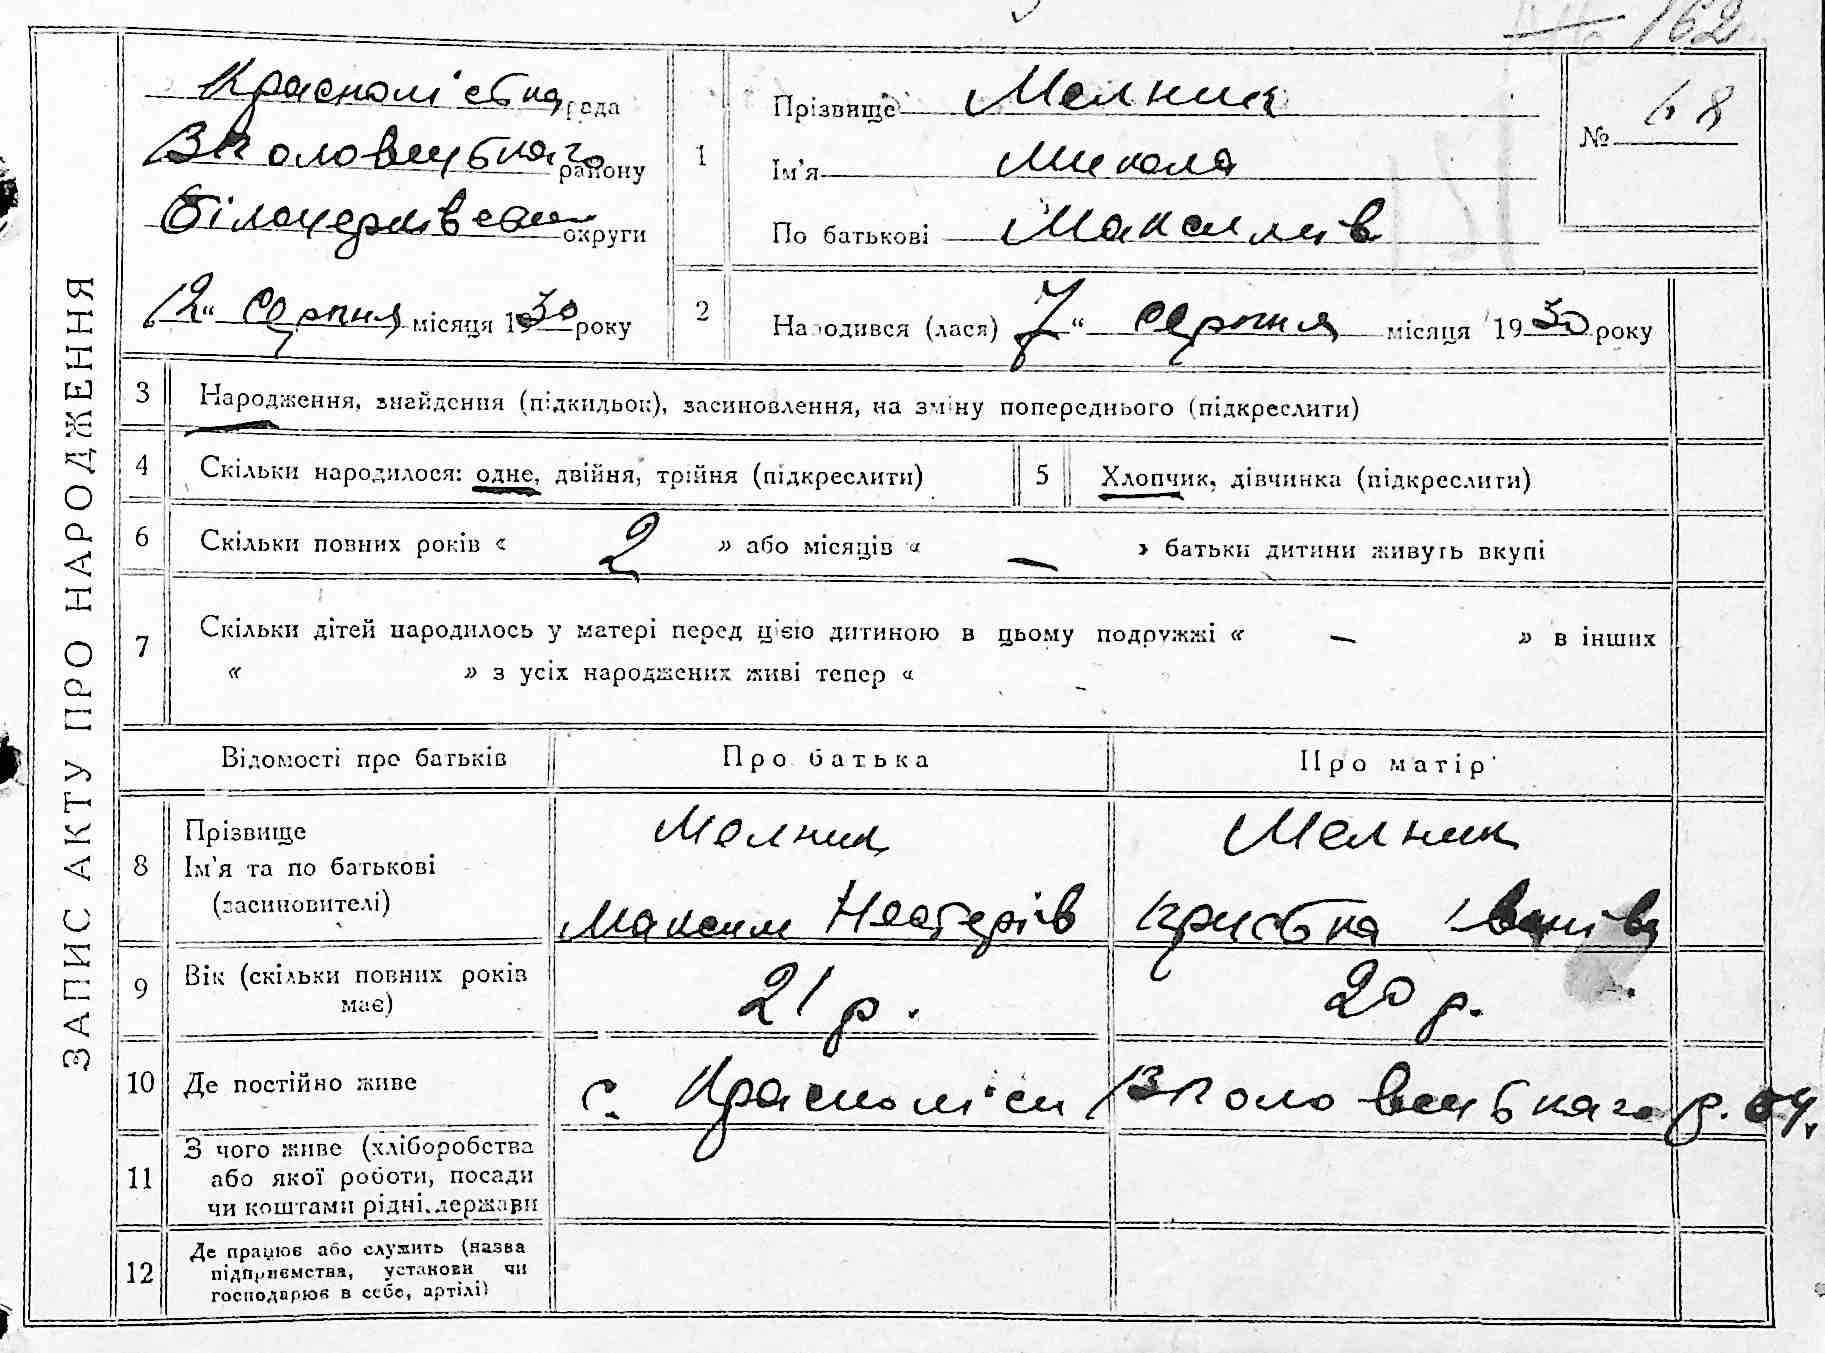 162
ЗАПИС АКТУ ПРО НАРОДЖЕННЯ
Краснолісбка рада
району
Білоцерківсби округи
12 " Серпня місяця 1930 року
1
Прізвище Мелник
Ім'я Микола
По батькові Максимів
№ 68
2
Народився (лася) 7 " Серпня місяця 1930 року
3 Народження, знайдення (підкидьок), засиновлення, на зміну попереднього (підкреслити)
4 Скільки народилося: одне, двійня, трійня (підкреслити)
5 Хлопчик, дівчинка (підкреслити)
6 Скільки повних років « 2 » або місяців « — » батьки дитини живуть вкупі
7 Скільки дітей народилось у матері перед цією дитиною в цьому подружжі « — » в інших
« » з усіх народжених живі тепер « -
Відомості про батьків Про батька Про матір
8 Прізвище
Ім'я та по батькові
(засиновителі)
Мелник
Максим Нестерів
Мелник
Кристбка Іванівн
9 Вік (скільки повних років має)
21 р.
20 р.
10 Де постійно живе с. Красноліси р.
11 З чого живе (хліборобства
або якої роботи, посади
чи коштами рідні, держави
12 Де працює або служить (назва
підприємства, установи чи
господарює в себе, артілі)